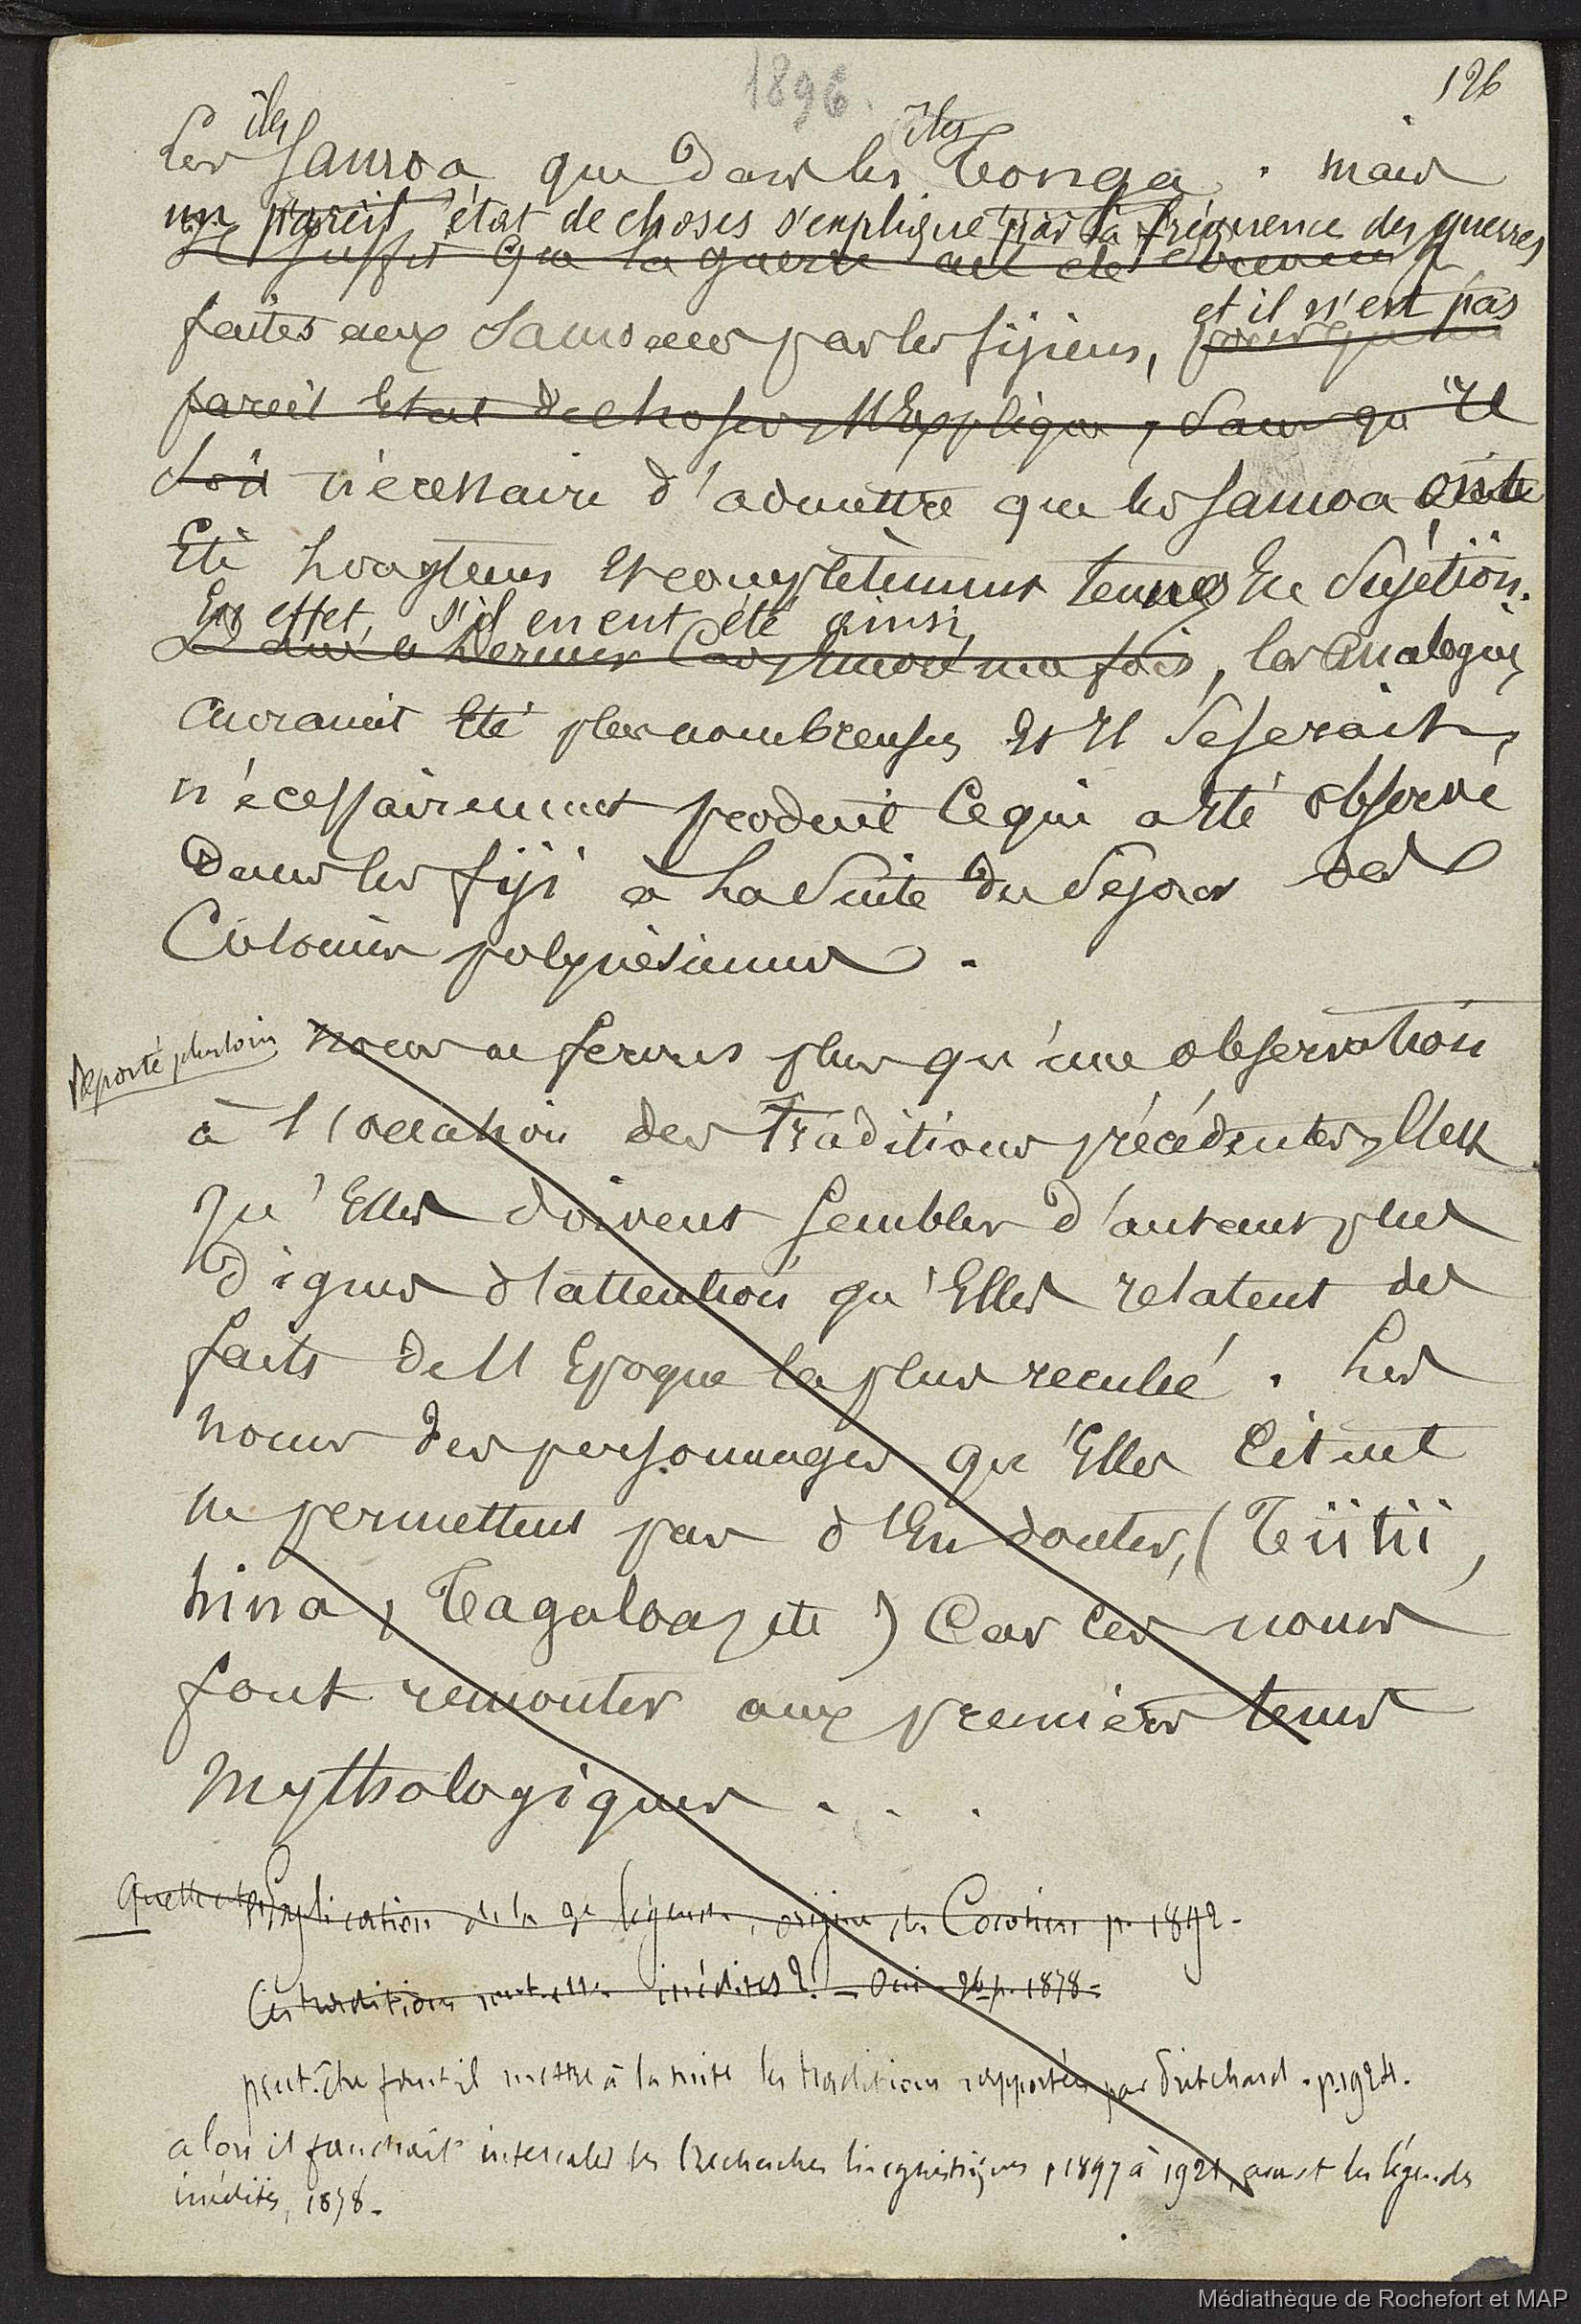 1896.
126
îles îles
Les Samoa que dans les Tonga. mais
un pareil état de choses s'explique par la fréquence des guerres
Il suffit que la guerre ait été
faites aux Samoans par les fijiens, et il n'est pas
pour qu'un
pareil Etat de choses s'Explique, sans qu'Il
Soit nécessaire d'admettre que les Samoa ont
Eté longtems Et complètement tenues En Sujétion.
En effet, s'il en eut été ainsi,
Dans ce dernier Cas, les analogies
auraient Eté plus nombreuses Et Il Se serait
nécessairement produit Ce qui a Eté observé
Dans les fiji à la Suite du Séjour des
Colonies polynésiennes.
Reporté plus loin
Nous ne ferons plus qu'une observation
à l'occasion des Traditions précédentes, C'est
qu'Elles doivent sembler d'autant plus
dignes d'attention qu'Elles relatent des
faits de l'Epoque la plus reculée. Les
noms des personnages qu'Elles Citent
ne permettent pas d'En douter, (Tiitii,
hina, Tagaloa, etc) Car Ces noms
font remonter aux premiers tems
Mythologiques . . .
Quelle est l'Explication de la 9e légende, origine des Cocotiers p. 1892.
Ces traditions sont-elles inédites? - Oui 26 p. 1878.
peut-être faut-il mettre à la suite les traditions rapportées par Pritchard. p. 1924.
alors il faudrait intercaler les Recherches linguistiques p 1897 à 1921, avant les légendes
inédites, 1878.
Médiathèque de Rochefort et MAP